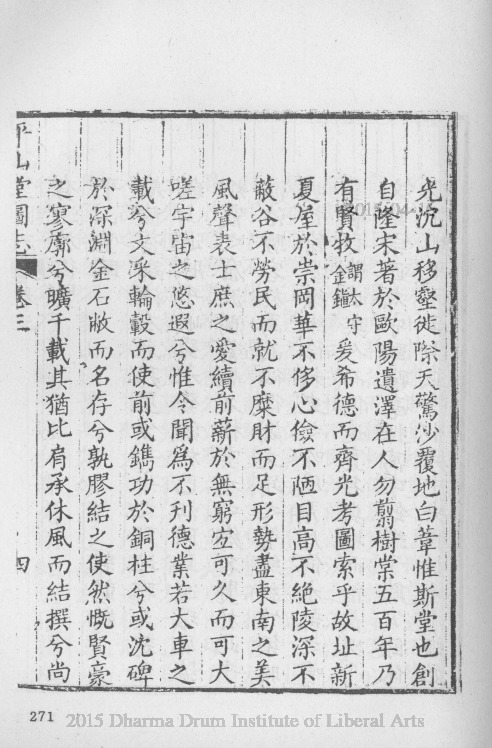 光沉山移壑徙際天驚沙覆地白葦惟斯堂也創
自隆宋著於歐陽遺澤在人勿翦樹棠五百年乃
有賢牧謂太守金鎮爰希德而齊光考圖索乎故址新
夏屋於崇岡華不侈心儉不陋目高不絶陵深不
蔽谷不勞民而就不糜財而足形勢盡東南之美
風聲表士庶之愛續前薪於無窮宜可久而可大
嗟宇宙之悠遐兮惟令聞爲不刊德業若大車之
載兮文采輪轂而使前或鐫功於銅柱兮或沈碑
於深淵金石敝而名存兮孰膠結之使然慨賢豪
之寥廓兮曠千載其猶比肩承休風而結撰兮尚
平山堂圖志 卷三 四
271
2015 Dharma Drum Institute of Liberal Arts